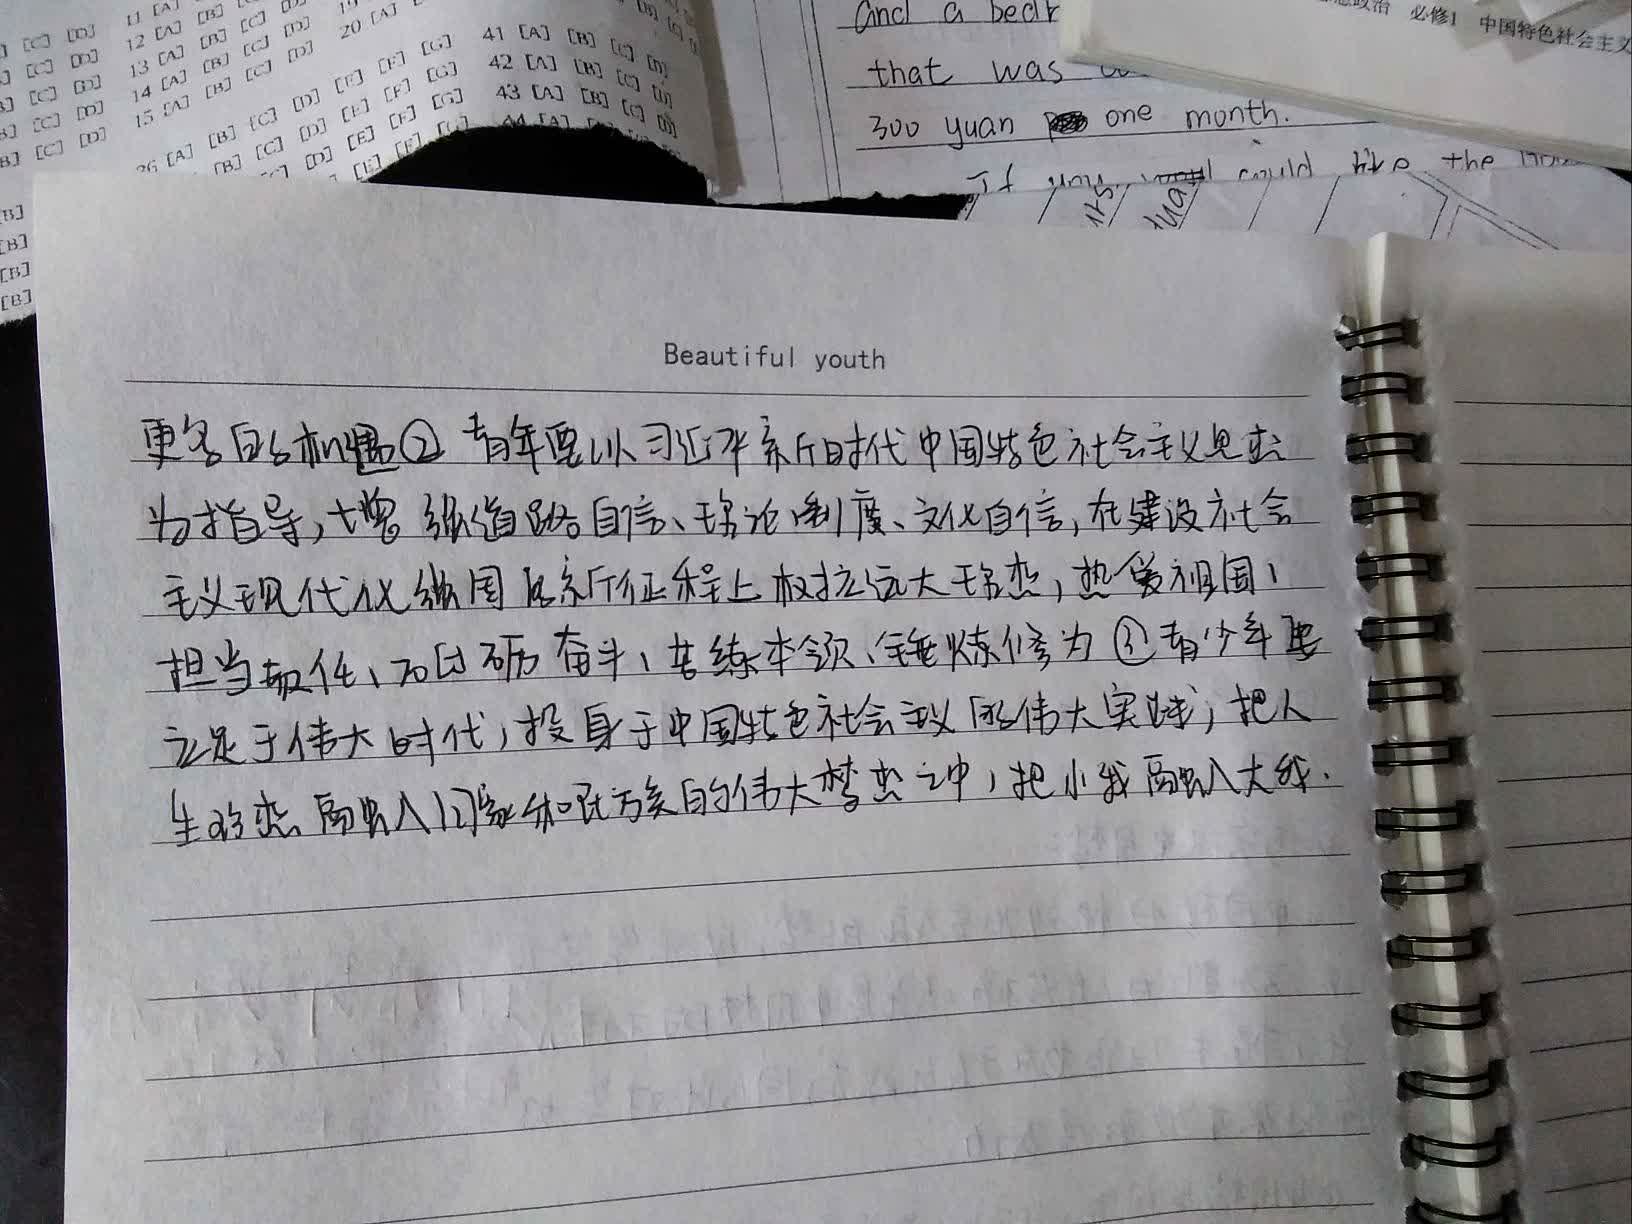 11 [A]
[C] [D] 12 [A] [B]
[C] [D] 13 [A] [B] [C] [D]
[C] [D] 14 [A] [B] [C] [D] 20 [A]
[C] [D] 15 [A] [B] [C] [D]
26 [A] [B] [C] [D] [E] [F] [G] 41 [A] [B] [C] [D]
[B] [C] [D] [E] [F] [G] 42 [A] [B] [C] [D]
[D] [E] [F] [G] 43 [A] [B] [C] [D]
[E] [F] [G] 44 [A]
[B]
[B]
[B]
[B]
and a bear
that was
300 yuan one month.
If you could like the
思想政治 必修1 中国特色社会主义
Beautiful youth
更多的机遇② 青年要以习近平新时代中国特色社会主义思想
为指导,增强道路自信、理论制度、文化自信,在建设社会
主义现代化强国的新征程上树立远大理想,热爱祖国,
担当责任、砥砺奋斗、苦练本领、锤炼修为 ③青少年要
立足于伟大时代,投身于中国特色社会主义的伟大实践,把人
生理想融入国家和民族的伟大梦想之中,把小我融入大我.